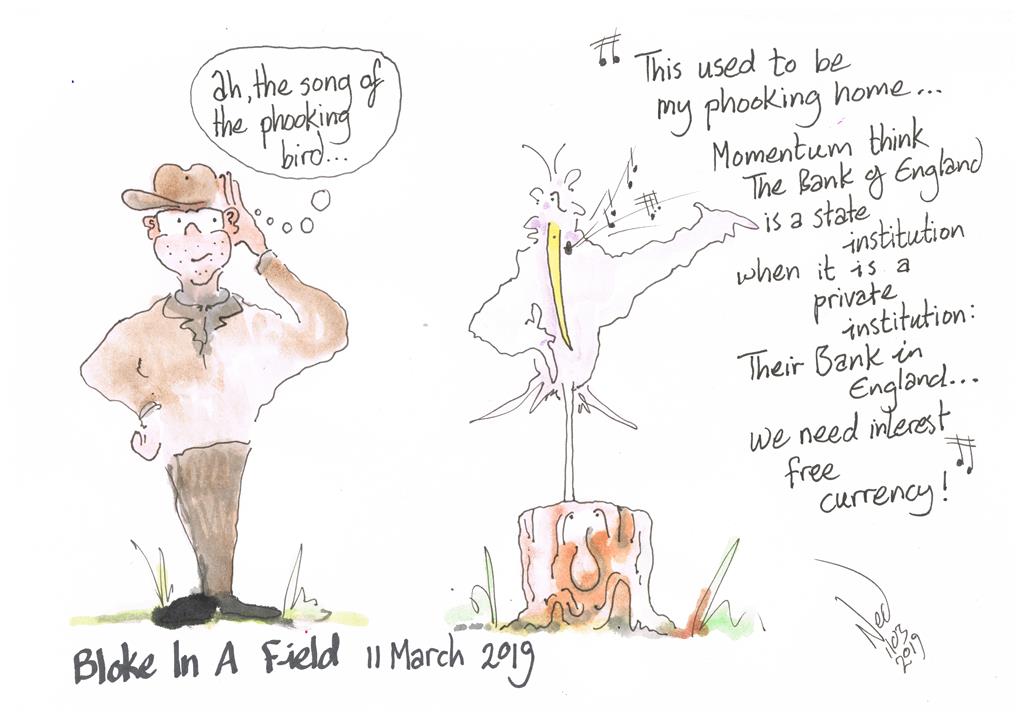 ah, the song of
the phooking
bird...
This used to be
my phooking home...
Momentum think
The Bank of England
is a state
institution
when it is a
private
institution:
Their Bank in
England...
we need interest
free
currency!
Ned
1103
2019
Bloke In A Field 11 March 2019